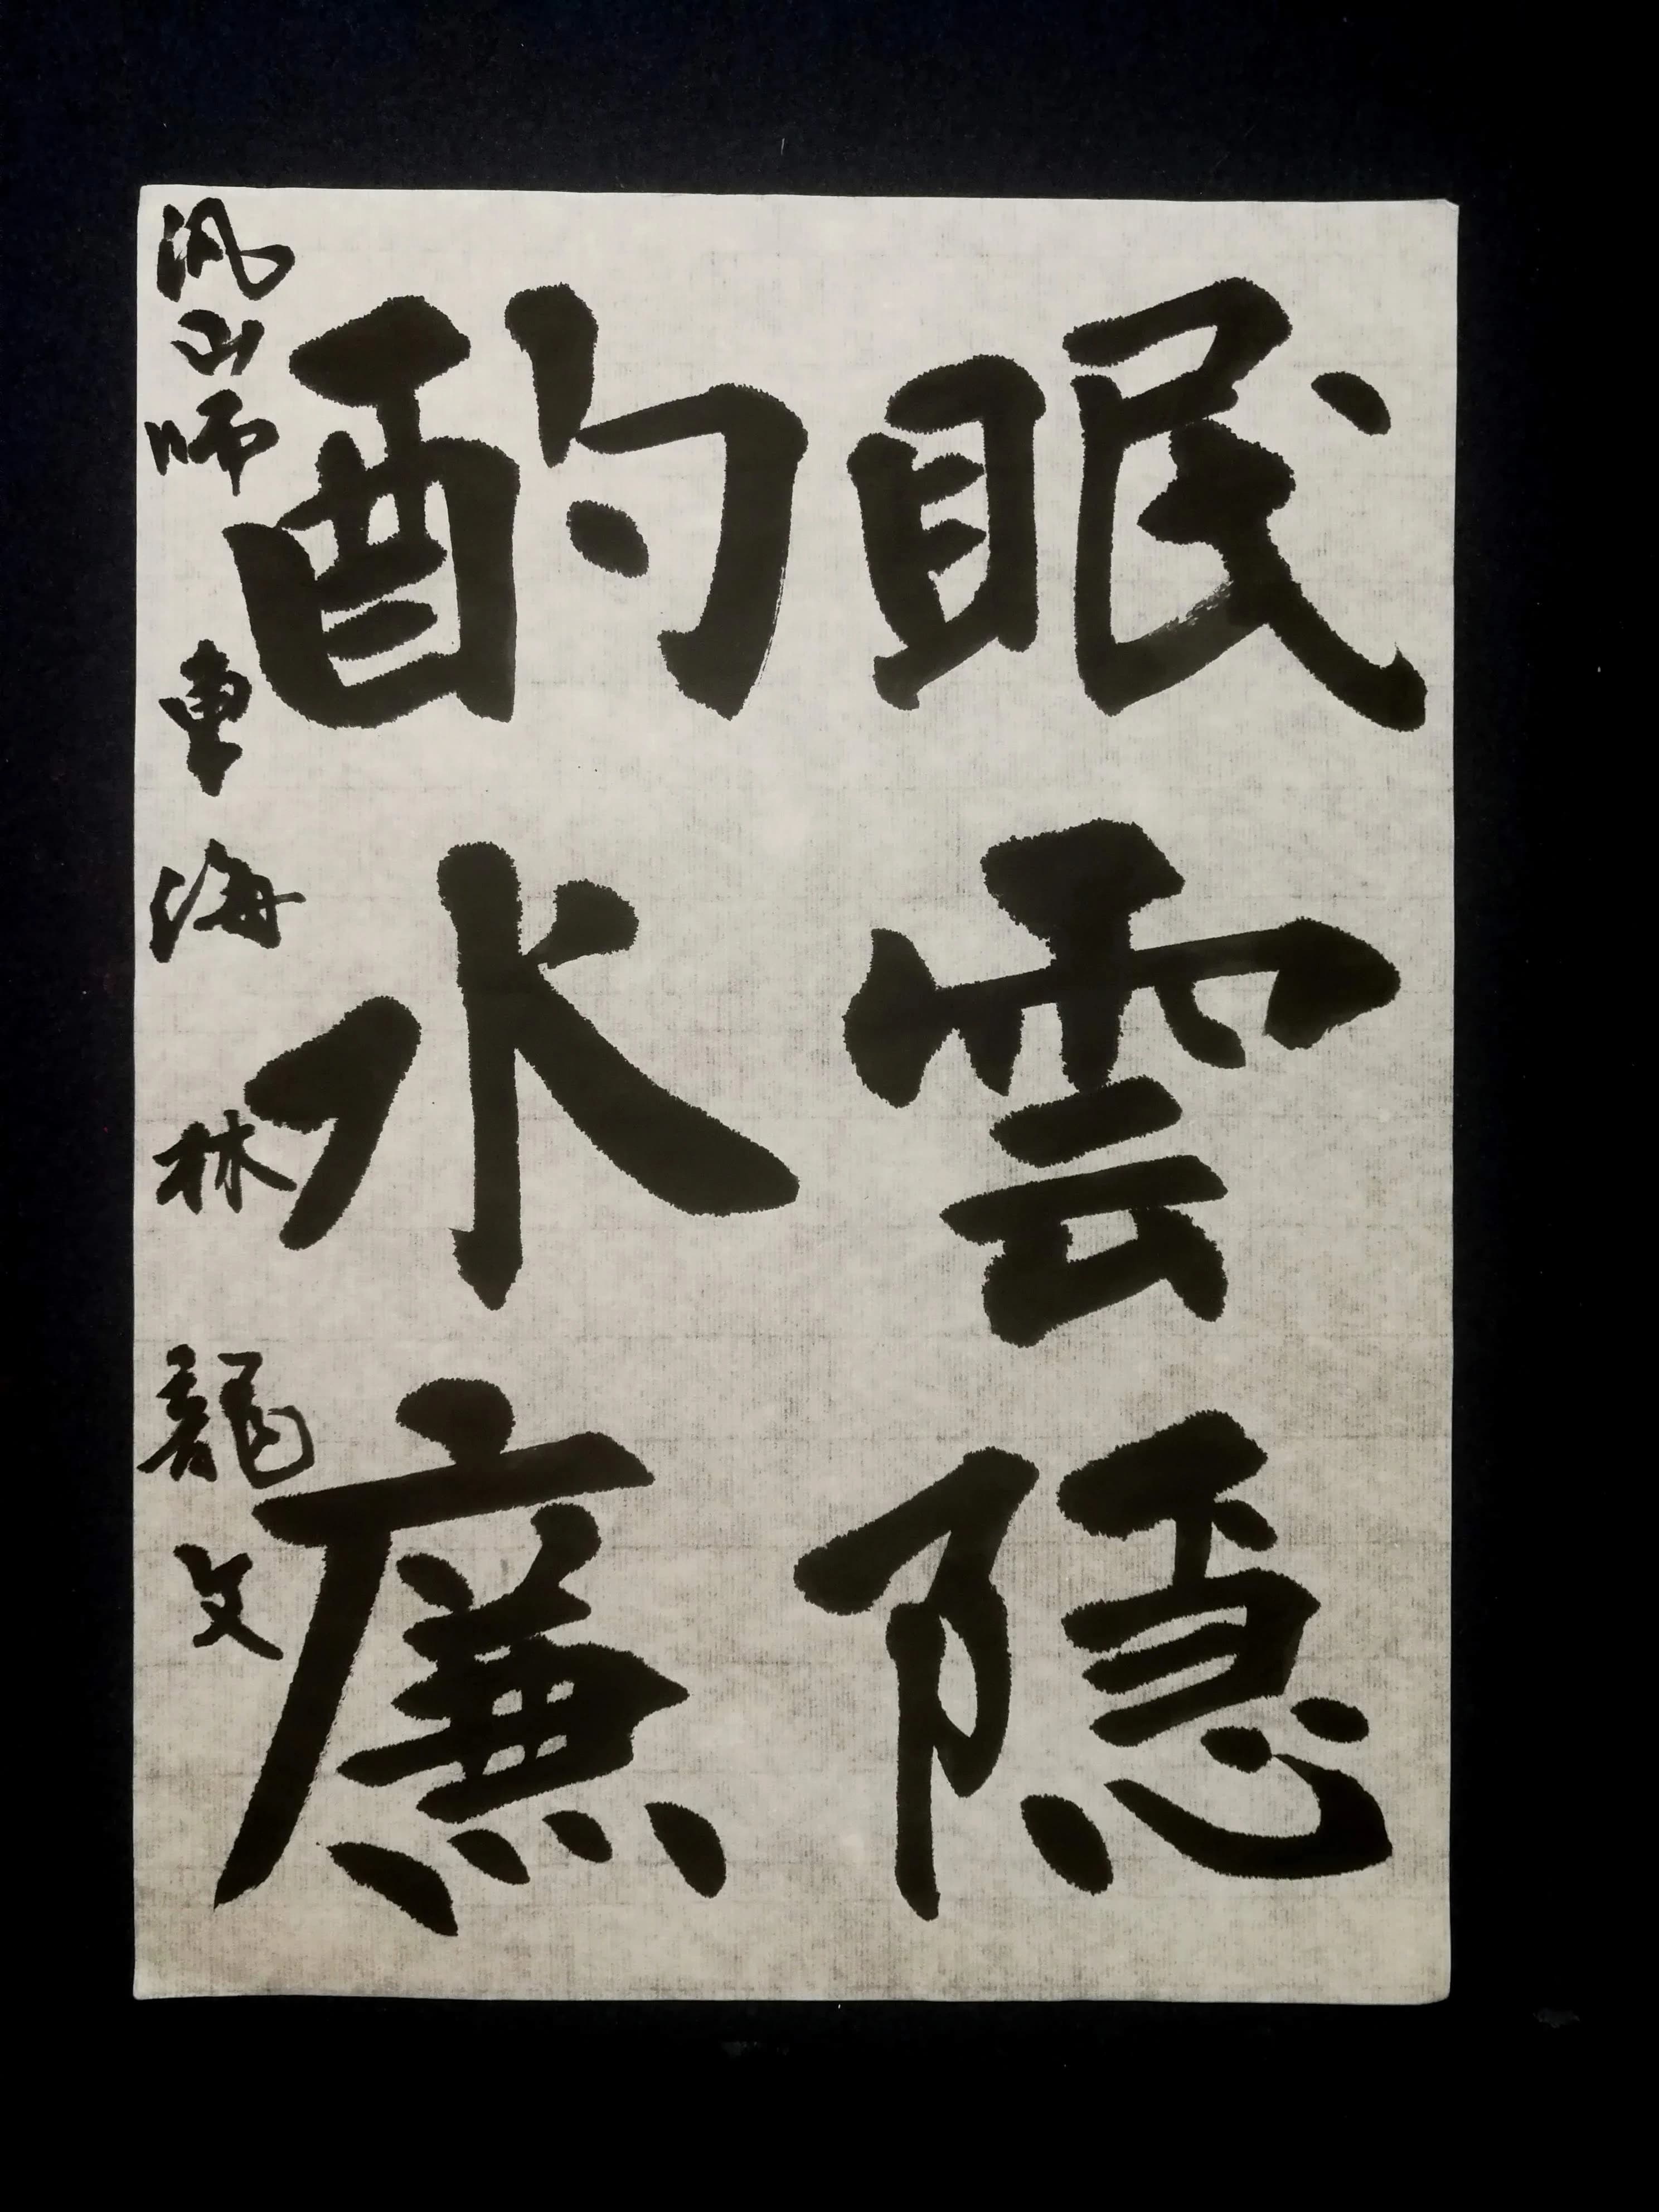 眠雲隠
酌水廉
山師 東海林 龍文